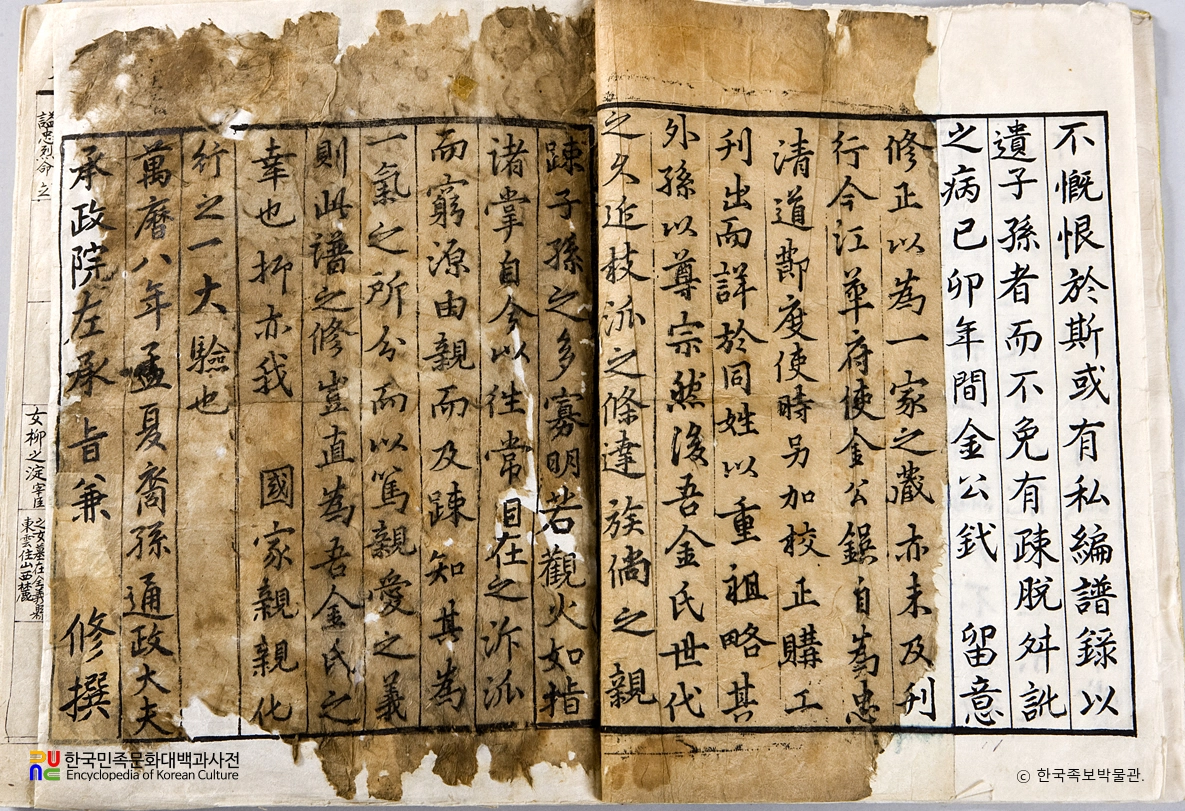 不慨恨於斯或有私編譜錄以
遺子孫者而不免有踈脫舛訛
之病已卯年間金公鈛 留意
修正以為一家之藏亦未及刋
行今江華府使金公鎂自為忠
清道節度使時另加校正購工
刋出而詳於同姓以重祖略其
外孫以尊宗然後吾金氏世代
之久近枝派之條達族倘之親
踈子孫之多寡明若觀火如指
諸掌自今以往常目在之泝派
而窮源由親而及踈知其為
一氣之所分而以篤親愛之義
則此譜之修豈直為吾金氏之
幸也抑亦我 國家親親化
行之一大驗也
萬曆八年孟夏裔孫通政大夫
承政院左承旨兼 修撰
諡忠烈命之
女柳之淀宰臣
之女墓在金義縣
東雲住山西麓
한국민족문화대백과사전
Encyclopedia of Korean Culture
© 한국족보박물관.